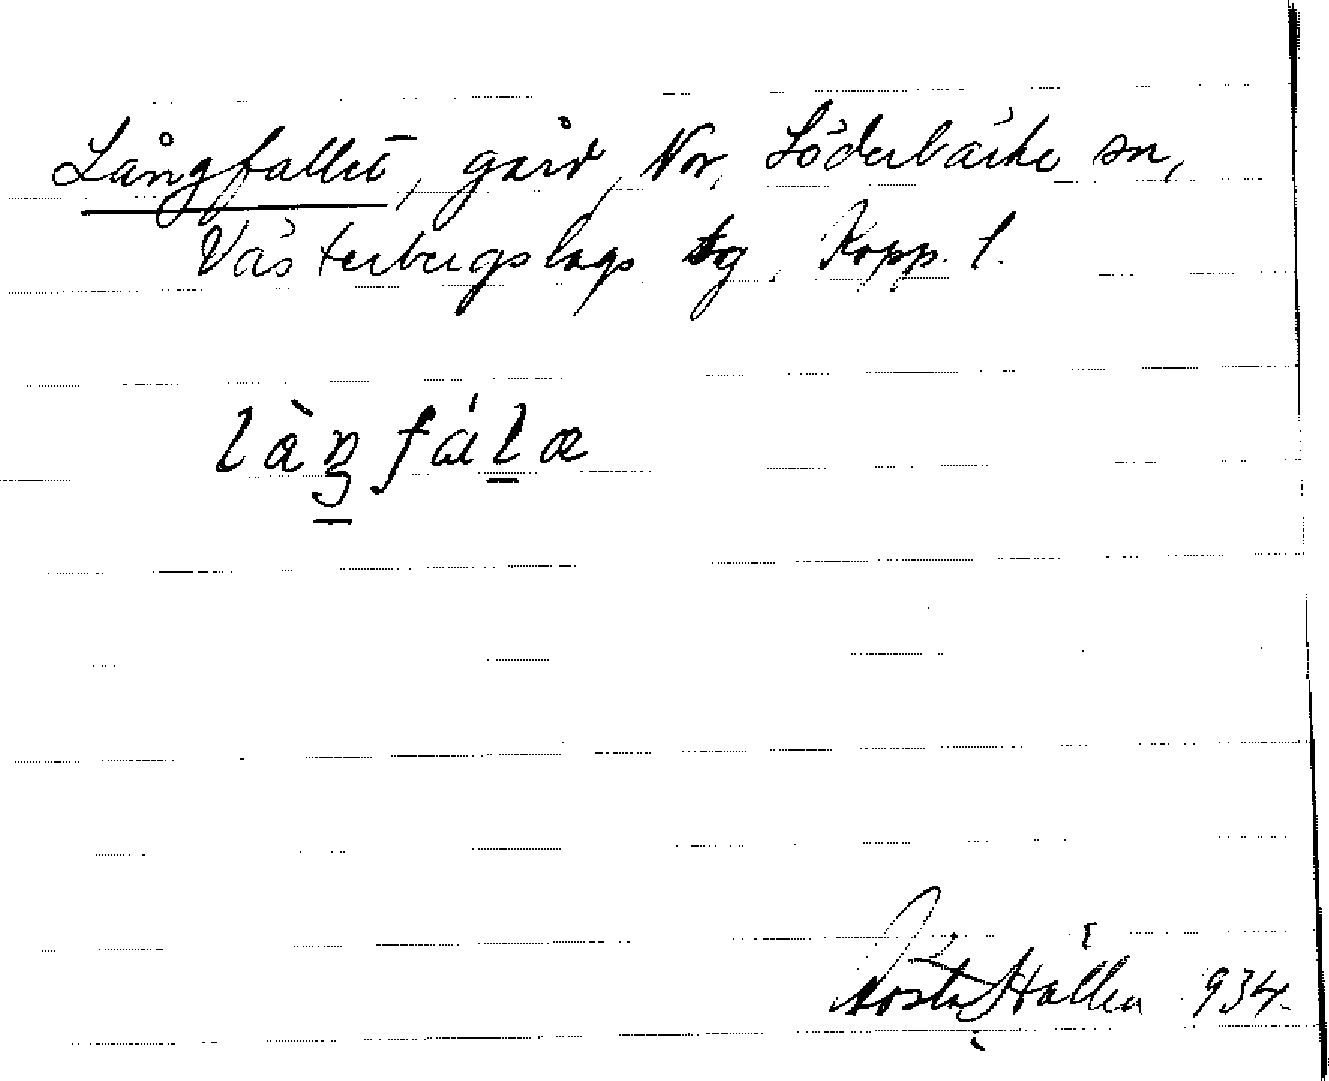 Långfallet, gård, Nor, Söderbärke sn,
Västerbergslags tg, Kopp. l.
làŋfálæ
Gösta Hallén 934.